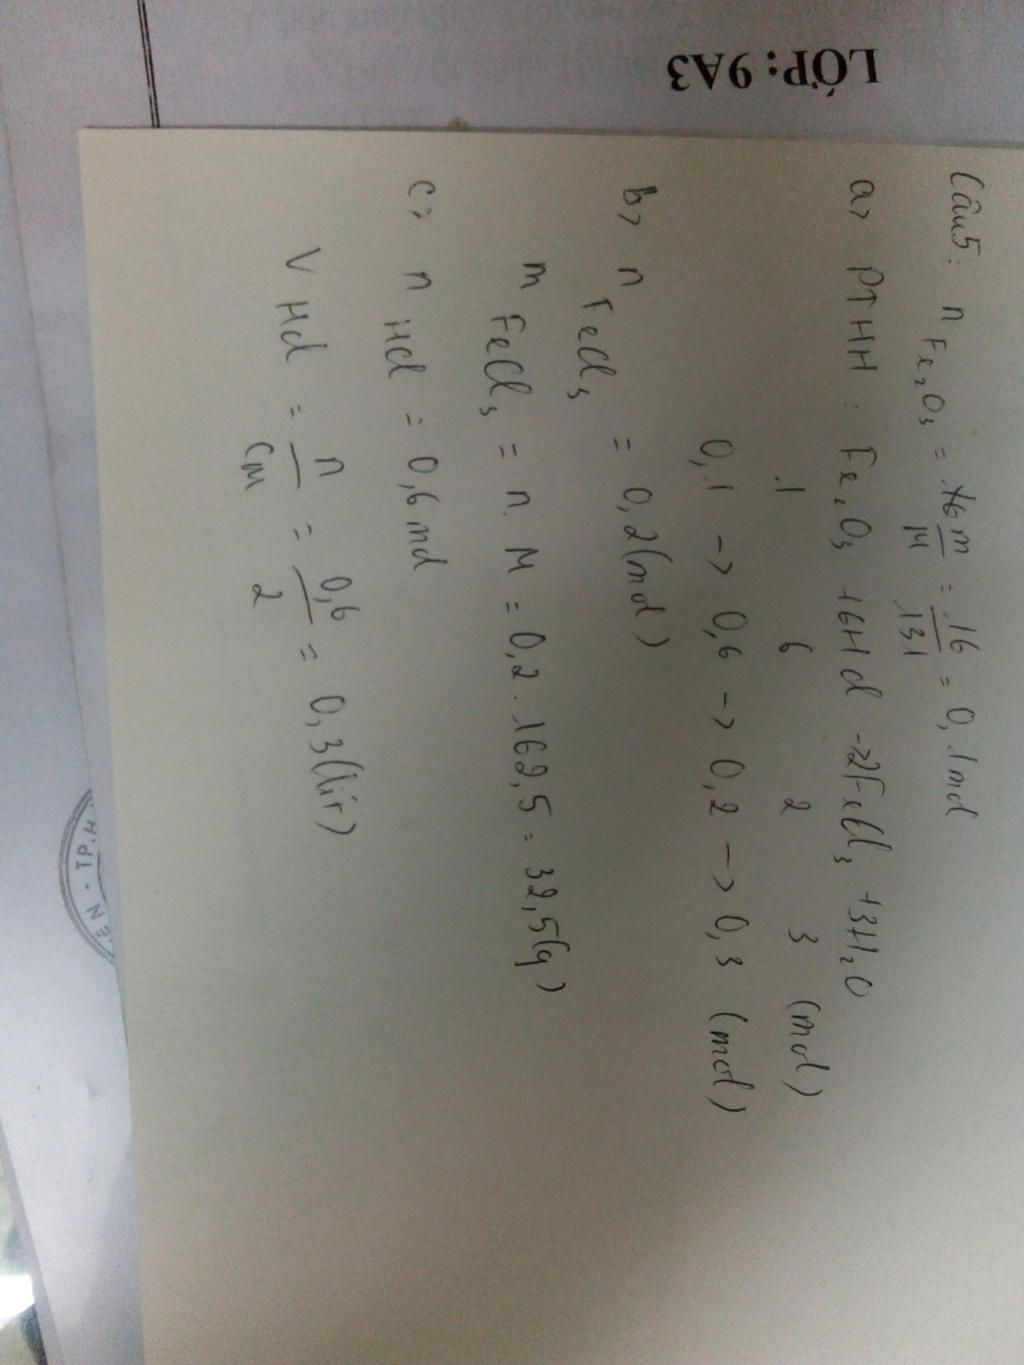 LỚP: 9A3
Câu5: n Fe₂O₃ = m/M = 16/131 = 0,1mol
a, PTHH: Fe₂O₃ +6HCl -> 2FeCl₃ +3H₂O
1 6 2 3 (mol)
0,1 -> 0,6 -> 0,2 -> 0,3 (mol)
b, n FeCl₃ = 0,2(mol)
m FeCl₃ = n. M = 0,2. 162,5 = 32,5(g)
c, n HCl = 0,6 mol
V HCl = n/CM = 0,6/2 = 0,3(lít)
TP.H